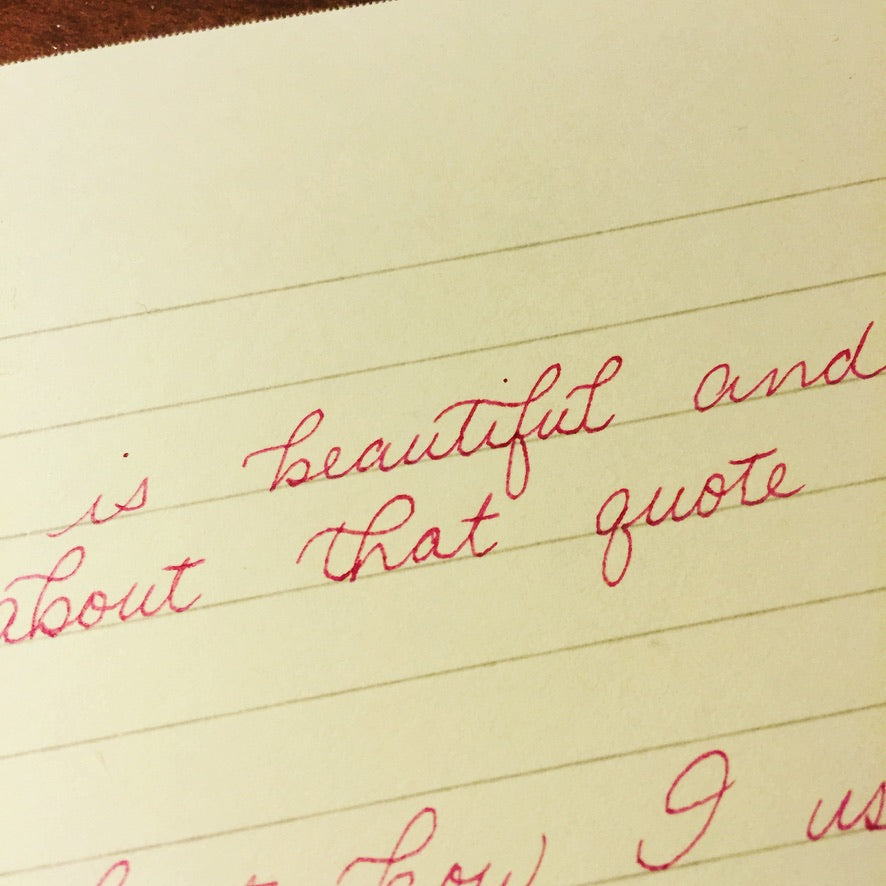 is beautiful and
about that quote
how I us